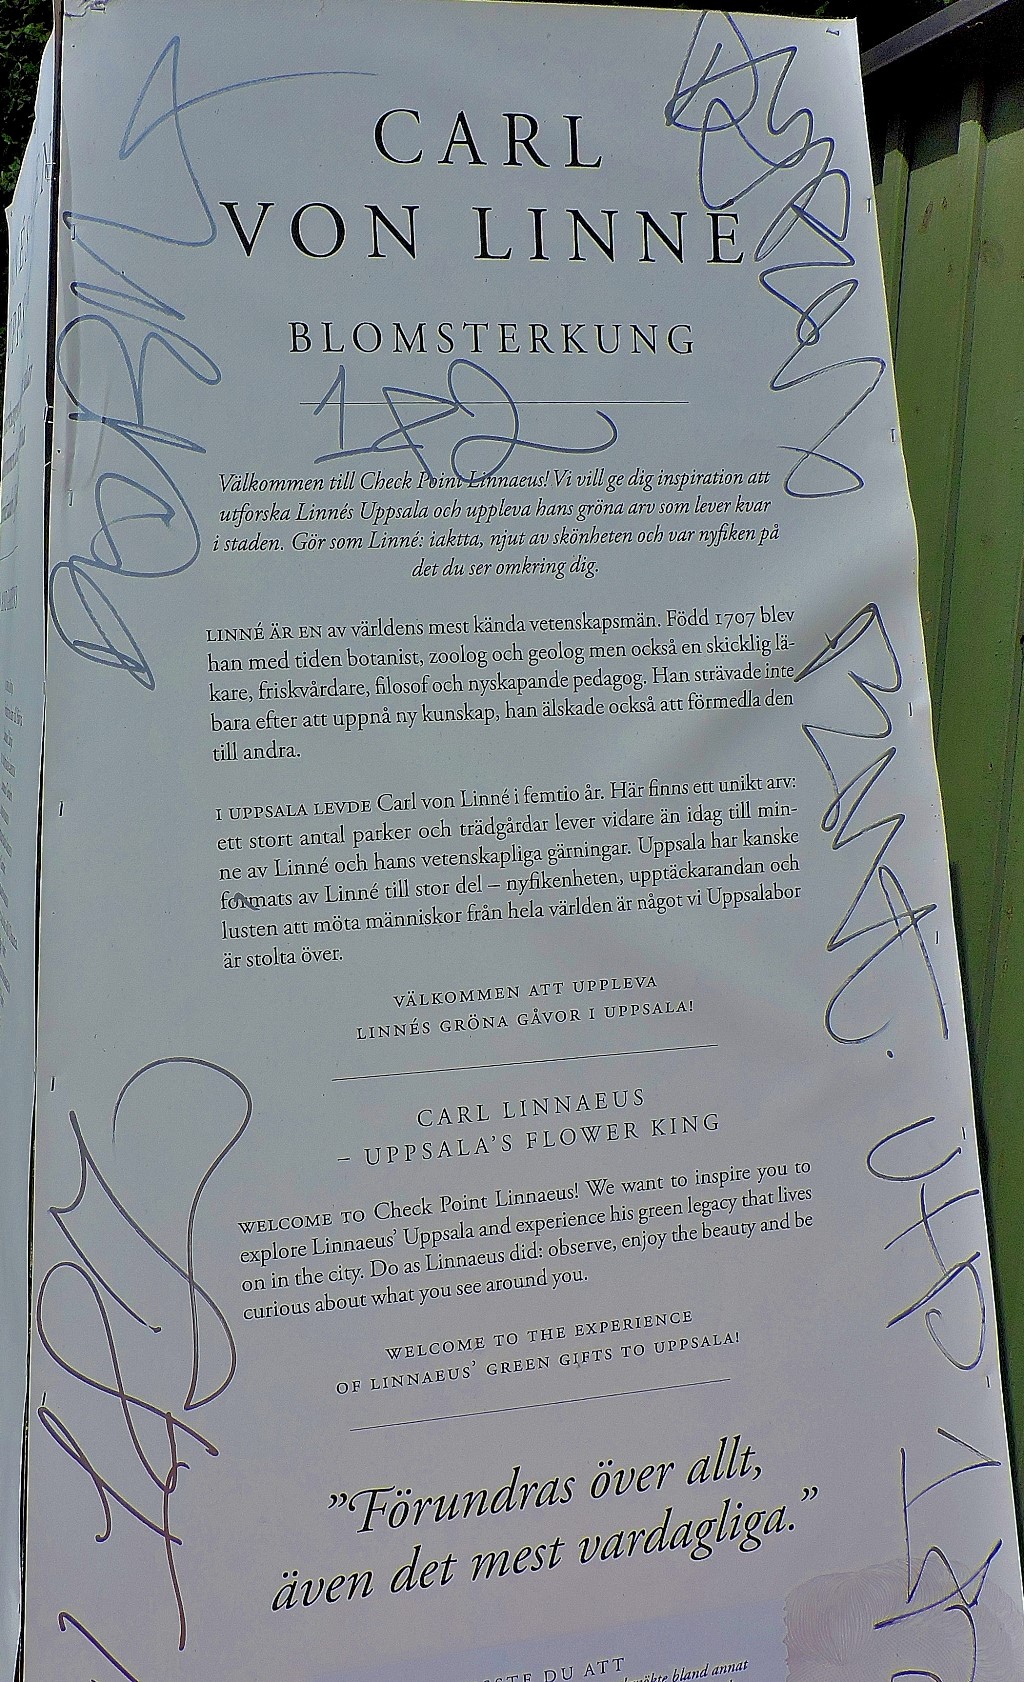 CARL
VON LINNÉ
BLOMSTERKUNG
182
Välkommen till Check Point Linnaeus! Vi vill ge dig inspiration att
utforska Linnés Uppsala och uppleva hans gröna arv som lever kvar
i staden. Gör som Linné: iaktta, njut av skönheten och var nyfiken på
det du ser omkring dig.
LINNÉ ÄR EN av världens mest kända vetenskapsmän. Född 1707 blev
han med tiden botanist, zoolog och geolog men också en skicklig lä-
kare, friskvårdare, filosof och nyskapande pedagog. Han strävade inte
bara efter att uppnå ny kunskap, han älskade också att förmedla den
till andra.
I UPPSALA LEVDE Carl von Linné i femtio år. Här finns ett unikt arv:
ett stort antal parker och trädgårdar lever vidare än idag till min-
ne av Linné och hans vetenskapliga gärningar. Uppsala har kanske
formats av Linné till stor del – nyfikenheten, upptäckarandan och
lusten att möta människor från hela världen är något vi Uppsalabor
är stolta över.
VÄLKOMMEN ATT UPPLEVA
LINNÉS GRÖNA GÅVOR I UPPSALA!
CARL LINNAEUS
– UPPSALA'S FLOWER KING
WELCOME TO Check Point Linnaeus! We want to inspire you to
explore Linnaeus' Uppsala and experience his green legacy that lives
on in the city. Do as Linnaeus did: observe, enjoy the beauty and be
curious about what you see around you.
WELCOME TO THE EXPERIENCE
OF LINNAEUS' GREEN GIFTS TO UPPSALA!
”Förundras över allt,
även det mest vardagliga.”
DU ATT
bland annat